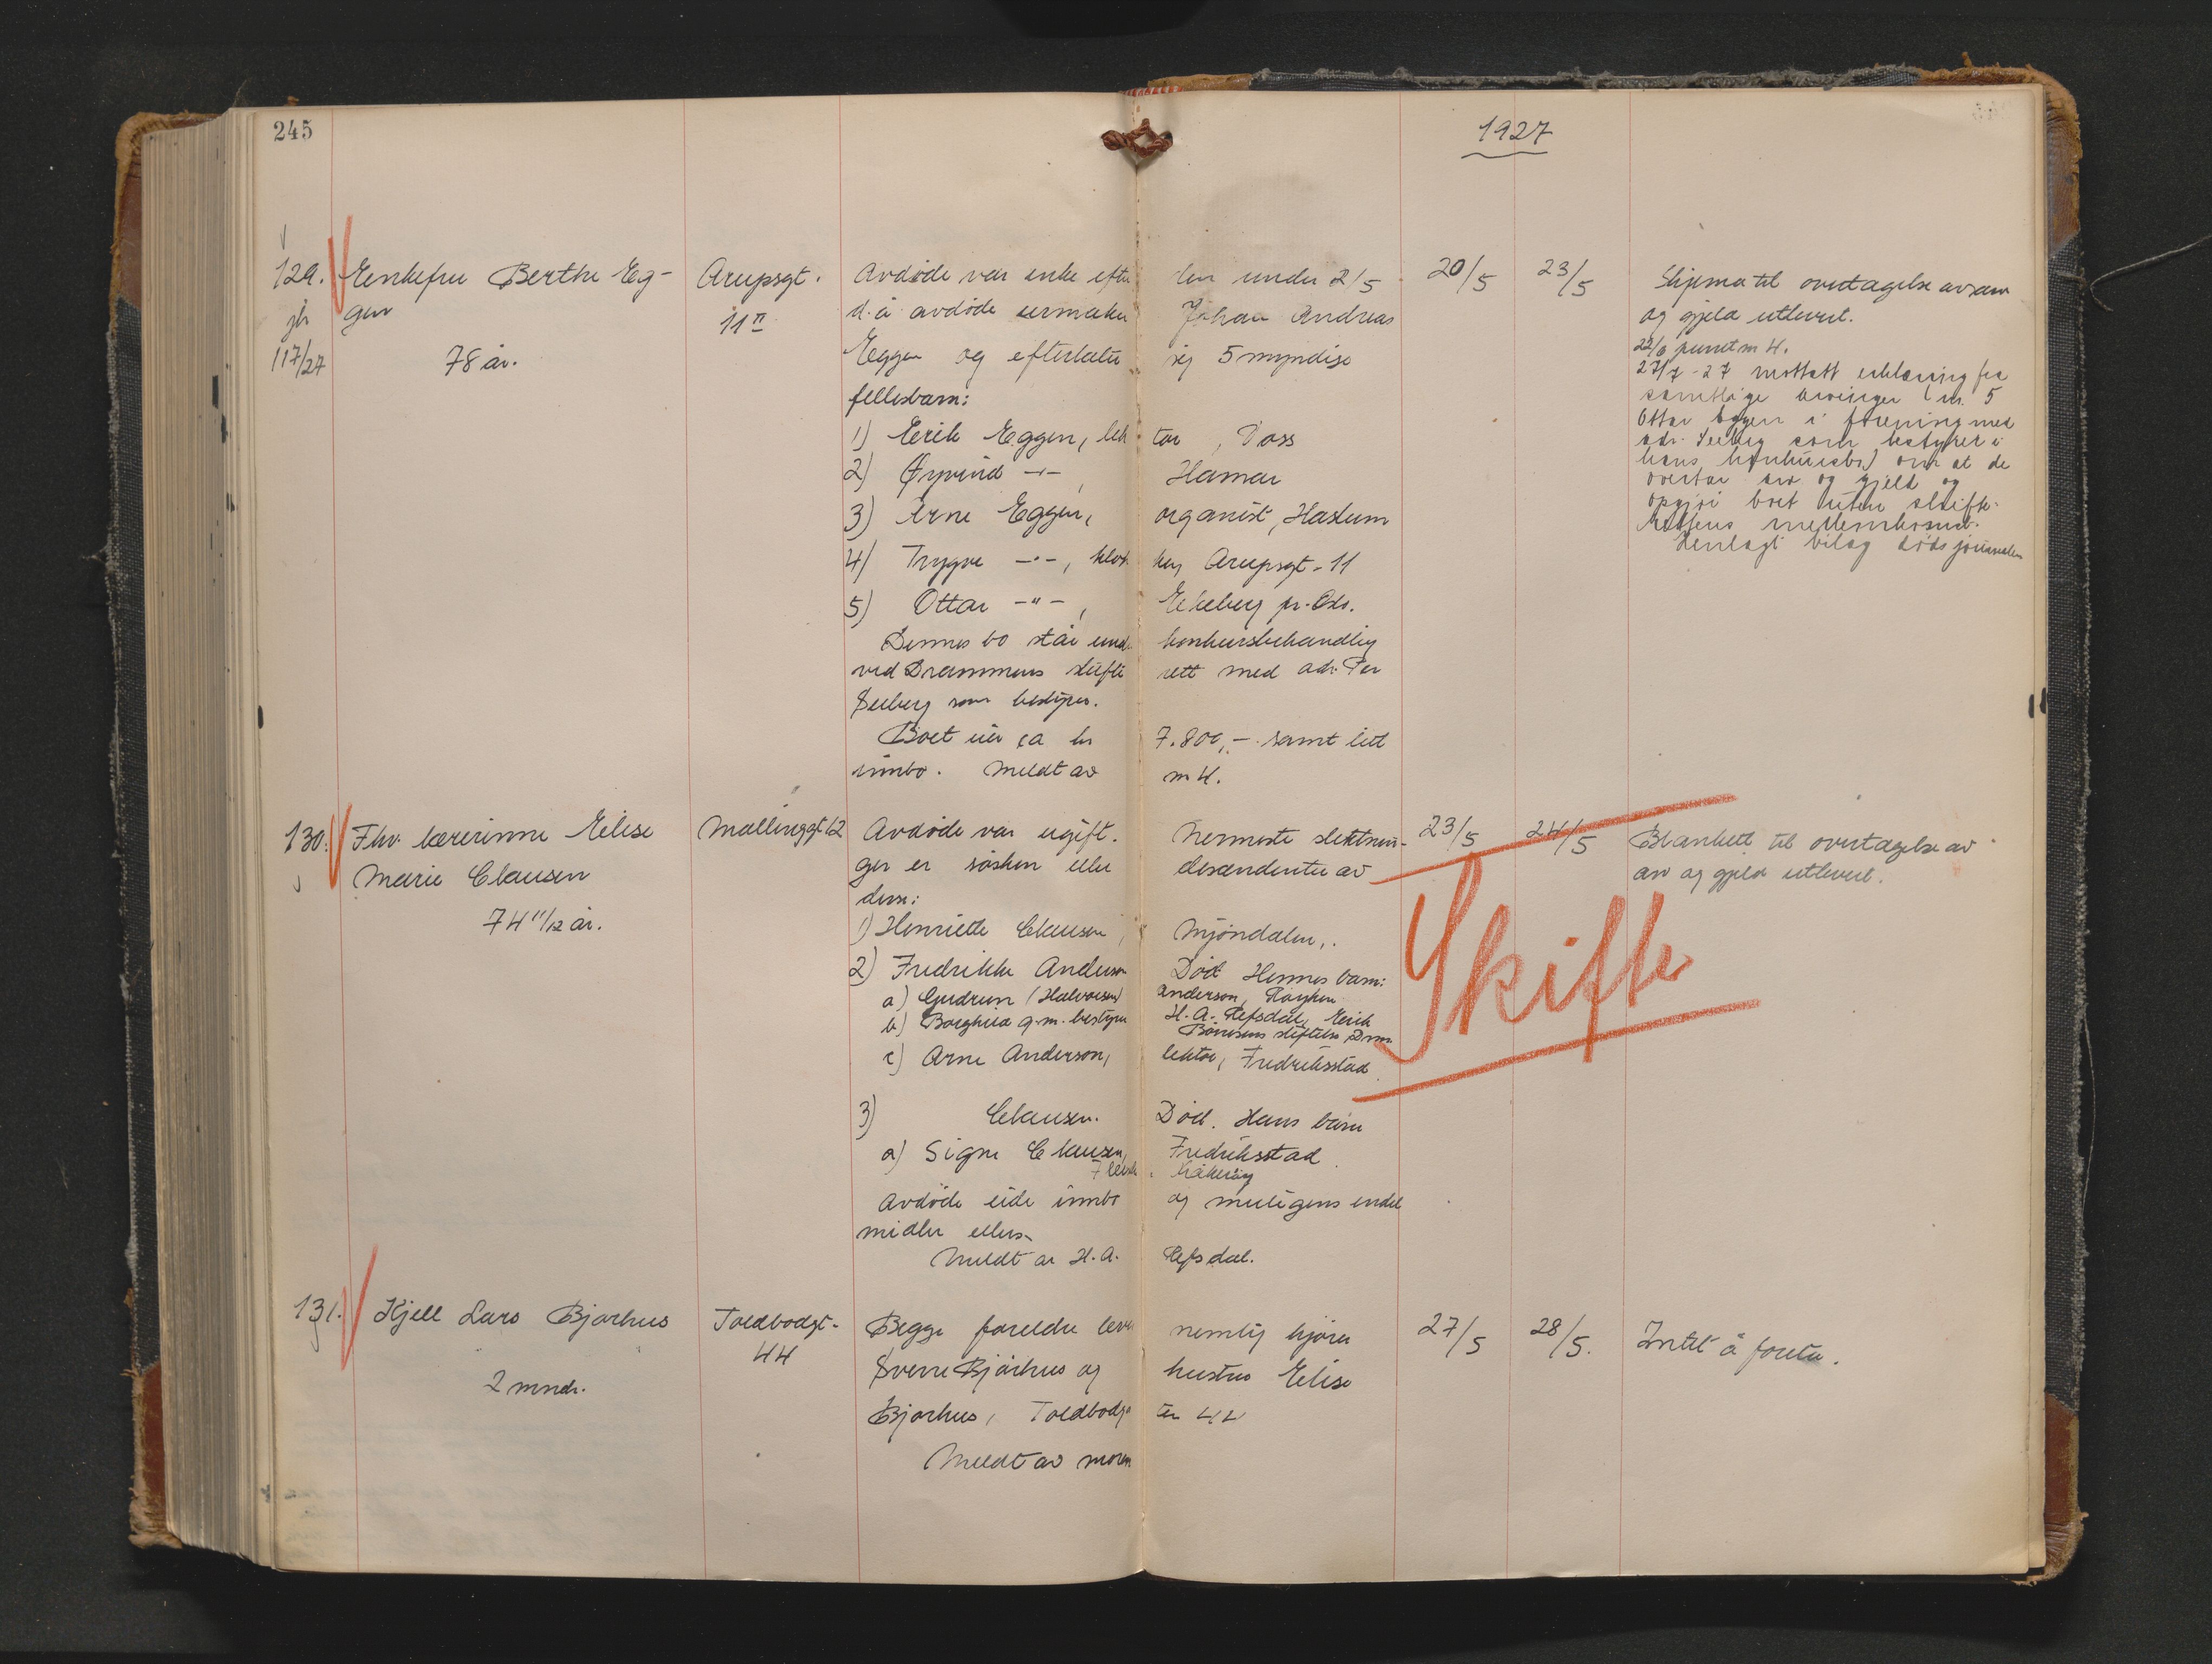 245
1927
129.
jfr
117/27
Enkefru Berthe Eg-
gen
78 år.
Arupsgt.
11 II
Avdøde var enke efter den under 2/5
d.å. avdøde urmaker Johan Andreas
Eggen og efterlater sig 5 myndige
fellesbarn:
1) Erik Eggen, lektor, Voss
2) Øyvind -"-, Hamar
3) Arne Eggen, organist, Haslum
4) Trygve -"-, klokker, Arupsgt. 11
5) Ottar -"-, Ekeberg pr. Oslo.
Dennes bo står under konkursbehandling
ved Drammens skifterett med adv. Per
Seeberg som bestyrer.
Boet eier ca kr 7.800,- samt litt
innbo. Meldt av nr 4.
20/5
23/5
Skjema til overtagelse av arv
og gjeld utlevert.
22/6 purret nr 4.
27/7-27 mottatt erklæring fra
samtlige arvinger (nr. 5
Ottar Eggen i forening med
adv. Seeberg som bestyrer i
hans konkursbo) om at de
overtar arv og gjeld og
opgjør boet uten skifte-
rettens mellemkomst.
Henlagt bilag dødsjournalen
130.
Fhv. lærerinne Elise
Marie Clausen
74 11/12 år.
Mallinggt. 12
Avdøde var ugift. Nermeste slektnin-
ger er søsken eller descendenter av
disse:
1) Henriette Clausen, Mjøndalen,.
2) Fredrikke Anderson Død Hennes barn:
a) Gudrun (Halvorsen) Anderson, Røyken
b) Borghild g.m. bestyrer H.A. Refsdal, Erik
Børresens stiftelse Drm
c) Arne Anderson, lektor, Fredriksstad
3) Clausen. Død. Hans barn
a) Signe Clausen, Fredriksstad
Kråkerøy
Avdøde eide innbo og muligens endel
midler ellers.
Meldt av H.A. Refsdal.
23/5
24/5
Blankett til overtagelse av
arv og gjeld utlevert.
Skifte
131.
Kjell Lars Bjørhus
2 mndr.
Toldbodgt.
44
Begge foreldre lever nemlig kjører
Sverre Bjørhus og hustru Elise
Bjørhus, Toldbodgaten 44
Meldt av moren
27/5
28/5.
Intet å foreta.